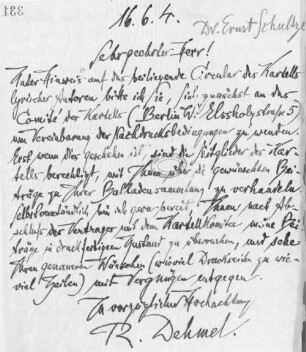 331
16.6.4.
Dr. Ernst Schultze
Sehr geehrter Herr!
Unter Hinweis auf das beiliegende Circular des Kartells
lyrischer Autoren bitte ich Sie, sich zunächst an das
Comité des Kartells (Berlin W. Elssholzstrasse 5)
um Vereinbarung der Nachdrucksbedingungen zu wenden.
Erst wenn dies geschehen ist, sind die Mitglieder des Kar-
tells berechtigt, mit Ihnen über die gewünschten Bei-
träge zu Ihrer Balladensammlung zu verhandeln.
Selbstverständlich bin ich gern bereit, Ihnen nach Ab-
schluss des Vertrages mit dem Kartellkomitee meine Bei-
träge in druckfertigem Zustand zu überweisen, und sehe
Ihren genaueren Wünschen (wieviel Druckseiten zu wie-
viel Zeilen) mit Vergnügen entgegen.
In vorzüglicher Hochachtung
R. Dehmel.